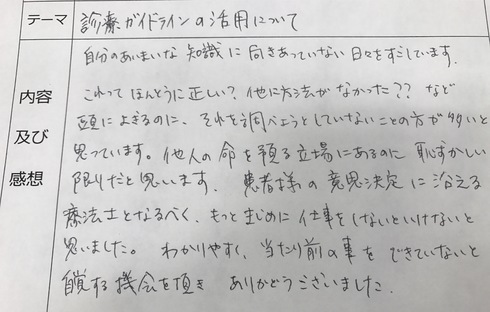 テーマ 診療ガイドラインの活用について
自分のあいまいな知識に向きあっていない日々をすごしています。
内容及び感想
これってほんとうに正しい？他に方法がなかった？？など
頭によぎるのに、それを調べようとしていないことの方が多いと
思っています。他人の命を預る立場にあるのに恥ずかしい
限りだと思います。患者様の意思決定に沿える
療法士となるべく、もっとまじめに仕事をしないといけないと
思いました。わかりやすく、当たり前の事をできていないと
自覚する機会を頂きありがとうございました。